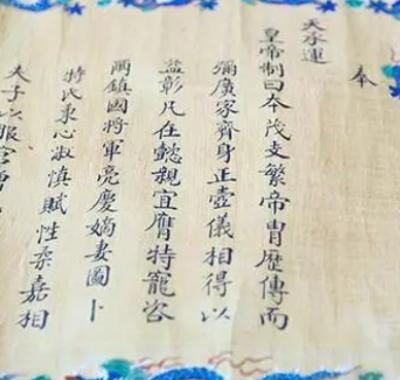 奉
天承運
皇帝制曰本茂支繁帝胄歷傳而
彌廣家齊身正壼儀相得以
益彰凡在懿親宜膺特寵咨
爾鎮國將軍亮慶嫡妻圖卜
特氏秉心淑慎賦性柔嘉相
夫子以服官